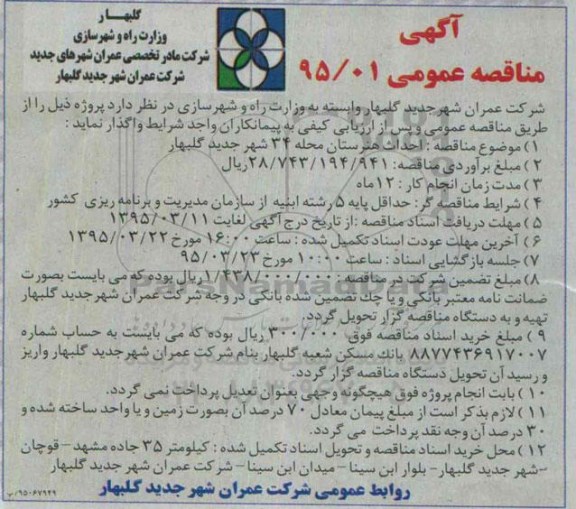 گلبهار
وزارت راه و شهرسازی
شرکت مادر تخصصی عمران شهرهای جدید
شرکت عمران شهر جدید گلبهار
آگهی
مناقصه عمومی ۹۵/۰۱
شرکت عمران شهر جدید گلبهار وابسته به وزارت راه و شهرسازی در نظر دارد پروژه ذیل را از
طریق مناقصه عمومی و پس از ارزیابی کیفی به پیمانکاران واجد شرایط واگذار نماید :
۱) موضوع مناقصه : احداث هنرستان محله ۳۴ شهر جدید گلبهار
۲) مبلغ برآوردی مناقصه: ۲۸/۷۴۳/۱۹۴/۹۴۱ریال
۳) مدت زمان انجام کار : ۱۲ماه
۴) شرایط مناقصه گر: حداقل پایه ۵ رشته ابنیه از سازمان مدیریت و برنامه ریزی کشور
۵) مهلت دریافت اسناد مناقصه :از تاریخ درج آگهی لغایت ۱۳۹۵/۰۳/۱۱
۶) آخرین مهلت عودت اسناد تکمیل شده : ساعت ۱۶:۰۰ مورخ ۱۳۹۵/۰۳/۲۲
۷) جلسه بازگشایی اسناد : ساعت ۱۰:۰۰ مورخ ۹۵/۰۳/۲۳
۸) مبلغ تضمین شرکت در مناقصه : ۱/۴۳۸/۰۰۰/۰۰۰ ریال بوده که می بایست بصورت
ضمانت نامه معتبر بانکی و یا چک تضمین شده بانکی در وجه شرکت عمران شهر جدید گلبهار
تهیه و به دستگاه مناقصه گزار تحویل گردد.
۹) مبلغ خرید اسناد مناقصه فوق ۳۰۰/۰۰۰ ریال بوده که می بایست به حساب شماره
۸۸۷۷۴۳۶۹۱۷۰۰۷ بانک مسکن شعبه گلبهار بنام شرکت عمران شهر جدید گلبهار واریز
و رسید آن تحویل دستگاه مناقصه گزار گردد.
۱۰) بابت انجام پروژه فوق هیچگونه وجهی بعنوان تعدیل پرداخت نمی گردد.
۱۱) لازم بذکر است از مبلغ پیمان معادل ۷۰ درصد آن بصورت زمین و یا واحد ساخته شده و
۳۰ درصد آن وجه نقد پرداخت می گردد.
۱۲) محل خرید اسناد مناقصه و تحویل اسناد تکمیل شده : کیلومتر ۳۵ جاده مشهد - قوچان
-شهر جدید گلبهار- بلوار ابن سینا - میدان ابن سینا - شرکت عمران شهر جدید گلبهار
روابط عمومی شرکت عمران شهر جدید گلبهار
۹۵۰۶۷۹۲۹/م
ParsNamadData